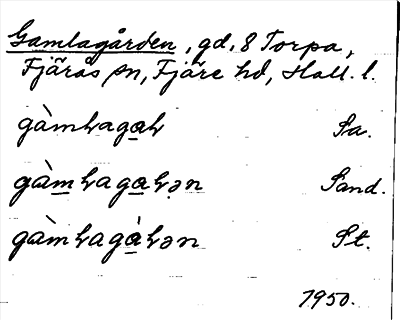 Gamlagården, gd, 8 Torpa,
Fjärås sn, Fjäre hd, Hall. l.
gàmƚagaƚ Sa.
gàmƚagaƚən Sand.
gàmƚagàƚən St.
1950.